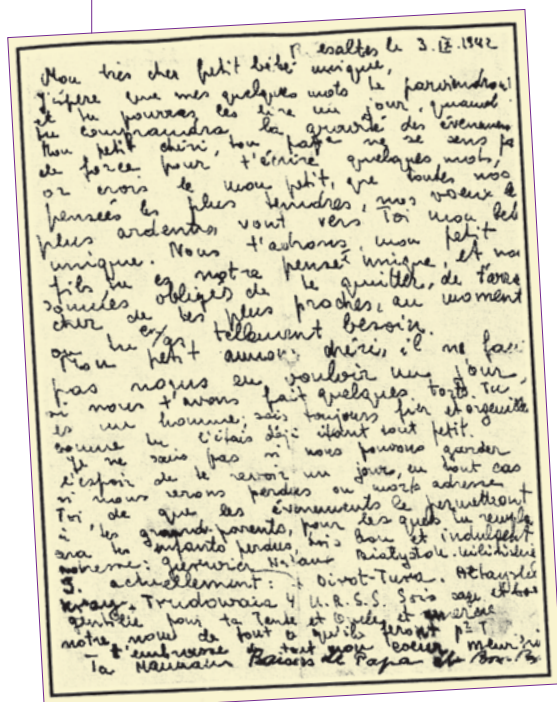 Rivesaltes le 3.IX.1942
Mon très cher petit bébé unique,
J'espère que mes quelques mots te parviendront
et tu pourras les lire un jour, quand
tu comprendra la gravité des évenemen
Mon petit chéri, ton papa ne se sens pa
de force pour t'écrire quelques mots,
or crois le mon petit, que toutes nos
pensées les plus tendres, nos voeux le
plus ardents vont vers Toi mon beb
unique. Nous t'adorons, mon petit
fils tu es notre pensée unique, et nou
sommes obligés de te quitter, de t'arra
cher de tes plus proches, au moment
ou tu en as tellement besoin.
Mon petit amour chéri, il ne fau
pas nous en vouloir un jour,
si nous t'avons fait quelques torts. Tu
es un homme, sois toujours fier et orgueille
comme tu l'étais déjà étant tout petit.
Je ne sais pas si nous pouvons garder
l'espoir de te revoir un jour, en tout cas
si nous serons perdus ou morts adresse
Toi, de que les évenements le permettront
à tes grand-parents, pour les quels tu rempla
cera les enfants perdus, sois bon et indulgent
adresse: Bialystok
5. actuellement: Oirot-Tura. Altayské
kray. Trudowaia 4 U.R.S.S. Sois sage et bon
gentille pour ta Tante et Oncle et
notre nom de tout ce qu'ils feront pr T.
t'embrasse de tout mon coeur meurtri
Ta Maman Baisers de Papa